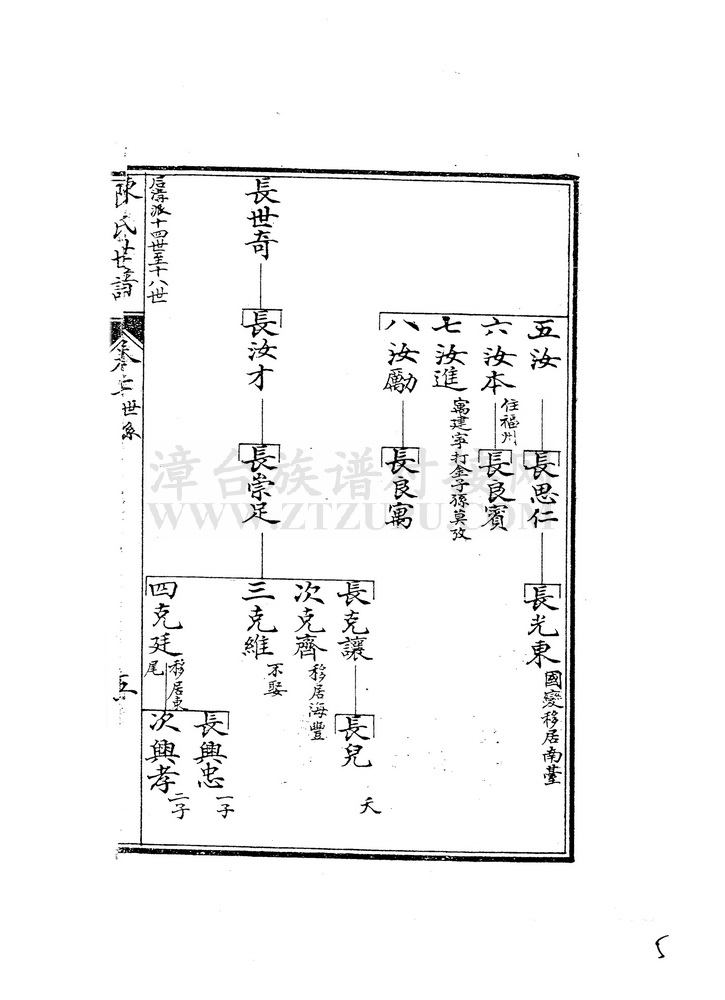 五汝
長思仁
長光東
國變移居南臺
六汝本
住福州
長良賓
七汝進
寓建寧打金子孫莫攷
八汝勵
長良寓
長世奇
長汝才
長崇足
長克讓
長兒
夭
次克齊
移居海豐
三克維
不娶
四克廷
移居東
尾
長興忠
一子
次興孝
二子
后淳派十四世至十八世
陳氏世譜
世系
五
漳台族谱对接网
WWW.ZTZUPU.COM
5